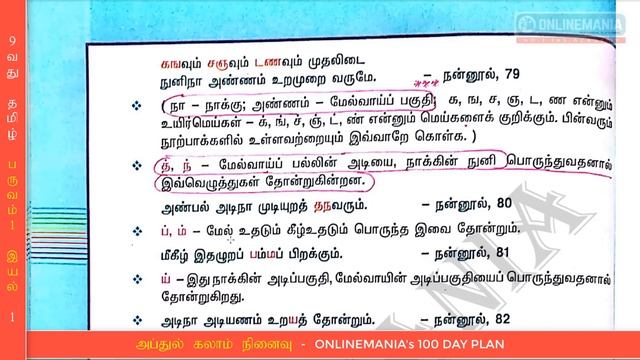 ONLINEMANIA
9 வது தமிழ் பருவம் 1 இயல் 1
கஙவும் சஞவும் டணவும் முதலிடை
நுனிநா அண்ணம் உறமுறை வருமே. – நன்னூல், 79
(நா – நாக்கு; அண்ணம் – மேல்வாய்ப் பகுதி; க, ங, ச, ஞ, ட, ண என்னும்
உயிர்மெய்கள் – க், ங், ச், ஞ், ட், ண் என்னும் மெய்களைக் குறிக்கும். பின்வரும்
நூற்பாக்களில் உள்ளவற்றையும் இவ்வாறே கொள்க. )
த், ந் – மேல்வாய்ப் பல்லின் அடியை, நாக்கின் நுனி பொருந்துவதனால்
இவ்வெழுத்துகள் தோன்றுகின்றன.
அண்பல் அடிநா முடியுறத் தநவரும். – நன்னூல், 80
ப், ம் – மேல் உதடும் கீழ்உதடும் பொருந்த இவை தோன்றும்.
மீகீழ் இதழுறப் பம்மப் பிறக்கும். – நன்னூல், 81
ய் – இது நாக்கின் அடிப்பகுதி, மேல்வாயின் அடிப்பகுதியைப் பொருந்துவதனால்
தோன்றுகிறது.
அடிநா அடியணம் உறயத் தோன்றும். – நன்னூல், 82
அப்துல் கலாம் நினைவு - ONLINEMANIA's 100 DAY PLAN